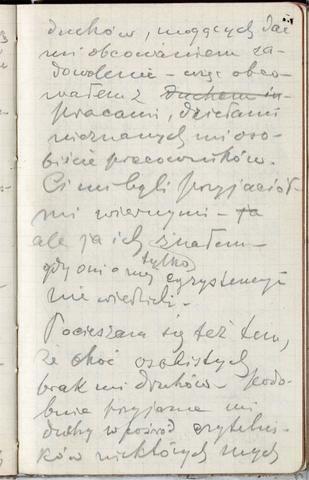 duchów, mogących dać
mi obcowaniem za-
dowolenie – więc obco-
wałem z duchem in-
pracami, dziełami
nieznanych mi oso-
biście pracowników.
Ci mi byli przyjaciół-
mi wiernymi – ja
ale ja ich znałem –
tylko
gdy oni o mej egzystencyi
nie wiedzieli. –
Pocieszam się też tem,
że choć osobistych
brak mi druhów – podo-
bnie przyjazne mi
duchy wpośród czytelni-
ków niektórych mych